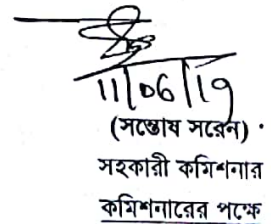 11/06/19
(সন্তোষ সরেন)
সহকারী কমিশনার
কমিশনারের পক্ষে